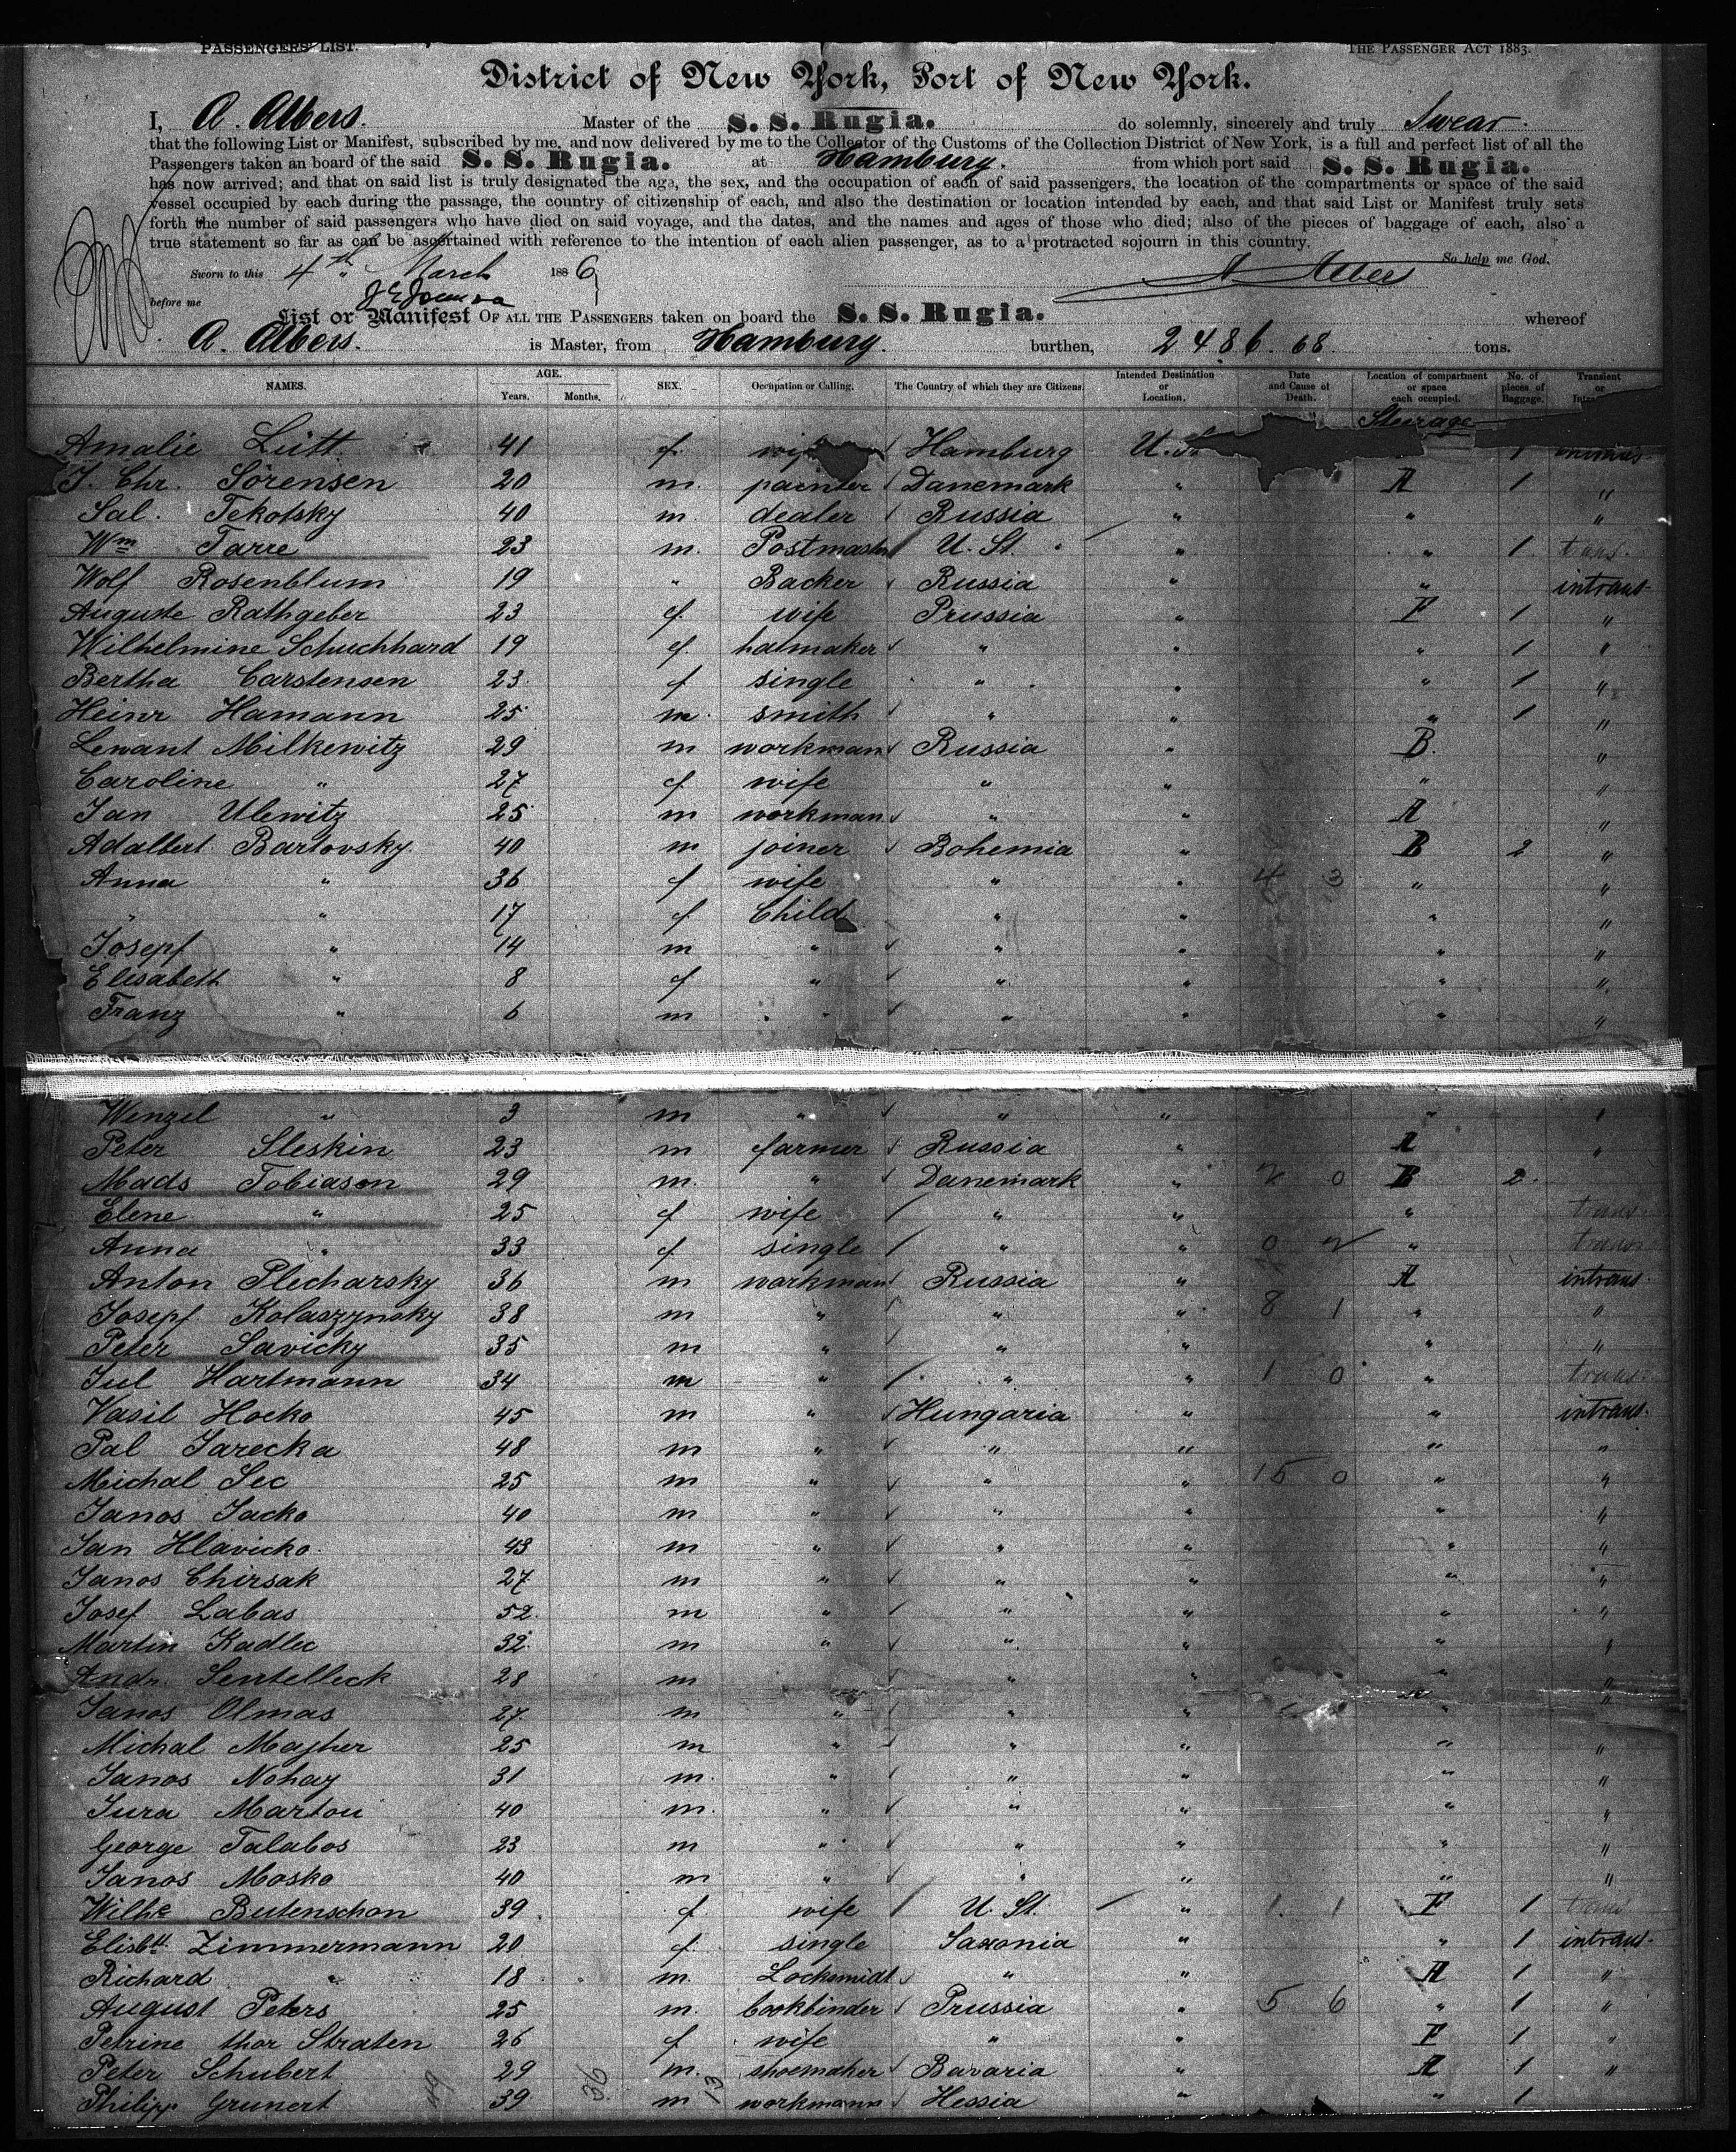 PASSENGERS' LIST. THE PASSENGER ACT 1883.
District of New York, Port of New York.
I, A. Albers. Master of the S. S. Rugia. do solemnly, sincerely and truly Swear.
that the following List or Manifest, subscribed by me, and now delivered by me to the Collector of the Customs of the Collection District of New York, is a full and perfect list of all the
Passengers taken an board of the said S. S. Rugia. at Hamburg. from which port said S. S. Rugia.
has now arrived; and that on said list is truly designated the age, the sex, and the occupation of each of said passengers, the location of the compartments or space of the said
vessel occupied by each during the passage, the country of citizenship of each, and also the destination or location intended by each, and that said List or Manifest truly sets
forth the number of said passengers who have died on said voyage, and the dates, and the names and ages of those who died; also of the pieces of baggage of each, also a
true statement so far as can be ascertained with reference to the intention of each alien passenger, as to a protracted sojourn in this country.
So help me God.
Sworn to this 4th March 1886 A Albers
before me
List or Manifest OF ALL THE PASSENGERS taken on board the S. S. Rugia. whereof
A. Albers. is Master, from Hamburg. burthen, 2486. 68 tons.
NAMES. AGE. Years. Months. SEX. Occupation or Calling. The Country of which they are Citizens. Intended Destination or Location. Date and Cause of Death. Location of compartment or space each occupied. No. of pieces of Baggage. Transient or
Steerage
Amalie Lütt 41 f. Hamburg 1
J. Chr. Sörensen 20 m. painter Danemark " A 1 "
Sal. Tekotsky 40 m. dealer Russia " " "
Wm Tarre 23 m. Postmaster U. St. " " 1 trans.
Wolf Rosenblum 19 " Backer Russia " " intrans.
Auguste Rathgeber 23 f. wife Prussia " F 1 "
Wilhelmine Schuchhard 19 f. hatmaker " " " 1 "
Bertha Carstensen 23 f single " " " 1 "
Heinr Hamann 25 m. smith " " " 1 "
Lewant Milkewitz 29 m workman Russia " B. "
Caroline " 27 f wife " " " "
Jan Ulewitz 25 m workman " " A "
Adalbert Bartovsky. 40 m joiner Bohemia " B 2 "
Anna " 36 f wife " " 4 3 " "
" " 17 f Child " " " "
Josepf " 14 m " " " " "
Elisabeth " 8 f " " " " "
Franz " 6 m " " " " "
Wenzel " 3 m " " " " "
Peter Sleskin 23 m farmer Russia " A "
Mads Tobiasen 29 m. " Danemark " 2 0 B 2.
Elene " 25 f wife " " " trans.
Anna " 33 f single " " 0 2 " trans
Anton Plecharsky 36 m workman Russia " A intrans.
Josepf Kolaszynsky 38 m " " " 8 1 " "
Peter Savicky 35 m " " " " "
Jul Hartmann 34 m " " " 1 0 " trans.
Vasil Hocko 45 m " Hungaria " " intrans.
Pal Jarecka 48 m " " " " "
Michal Sec 25 m " " " 15 0 " "
Janos Jacko 40 m " " " " "
Jan Hlavicko. 43 m " " " " "
Janos Chirsak 27 m " " " " "
Josef Labas 52. m " " " " "
Martin Kadlec 32 m " " " " "
Andr. Sentelleck 28 m " " " "
Janos Olmas 27. m " " " " "
Michal Majher 25 m " " " " "
Janos Nohay 31 m. " " " " "
Jura Martou 40 m. " " " " "
George Talabos 23 m " " " " "
Janos Mosko 40 m " " " " "
Wilhe Butenschon 39. f wife U. St. " 1 1 F 1 trans
Elisbth Zimmermann 20 f. single Saxonia " " 1 intrans.
Richard " 18. m. Locksmidt " " A 1 "
August Peters 25 m. bookbinder Prussia " 5 6 " 1 "
Petrine thor Straten 26 f wife " " F 1 "
Peter Schubert 29 m. shoemaker Bavaria " A 1 "
Philipp Grunert 39 m workmann Hessia " " 1